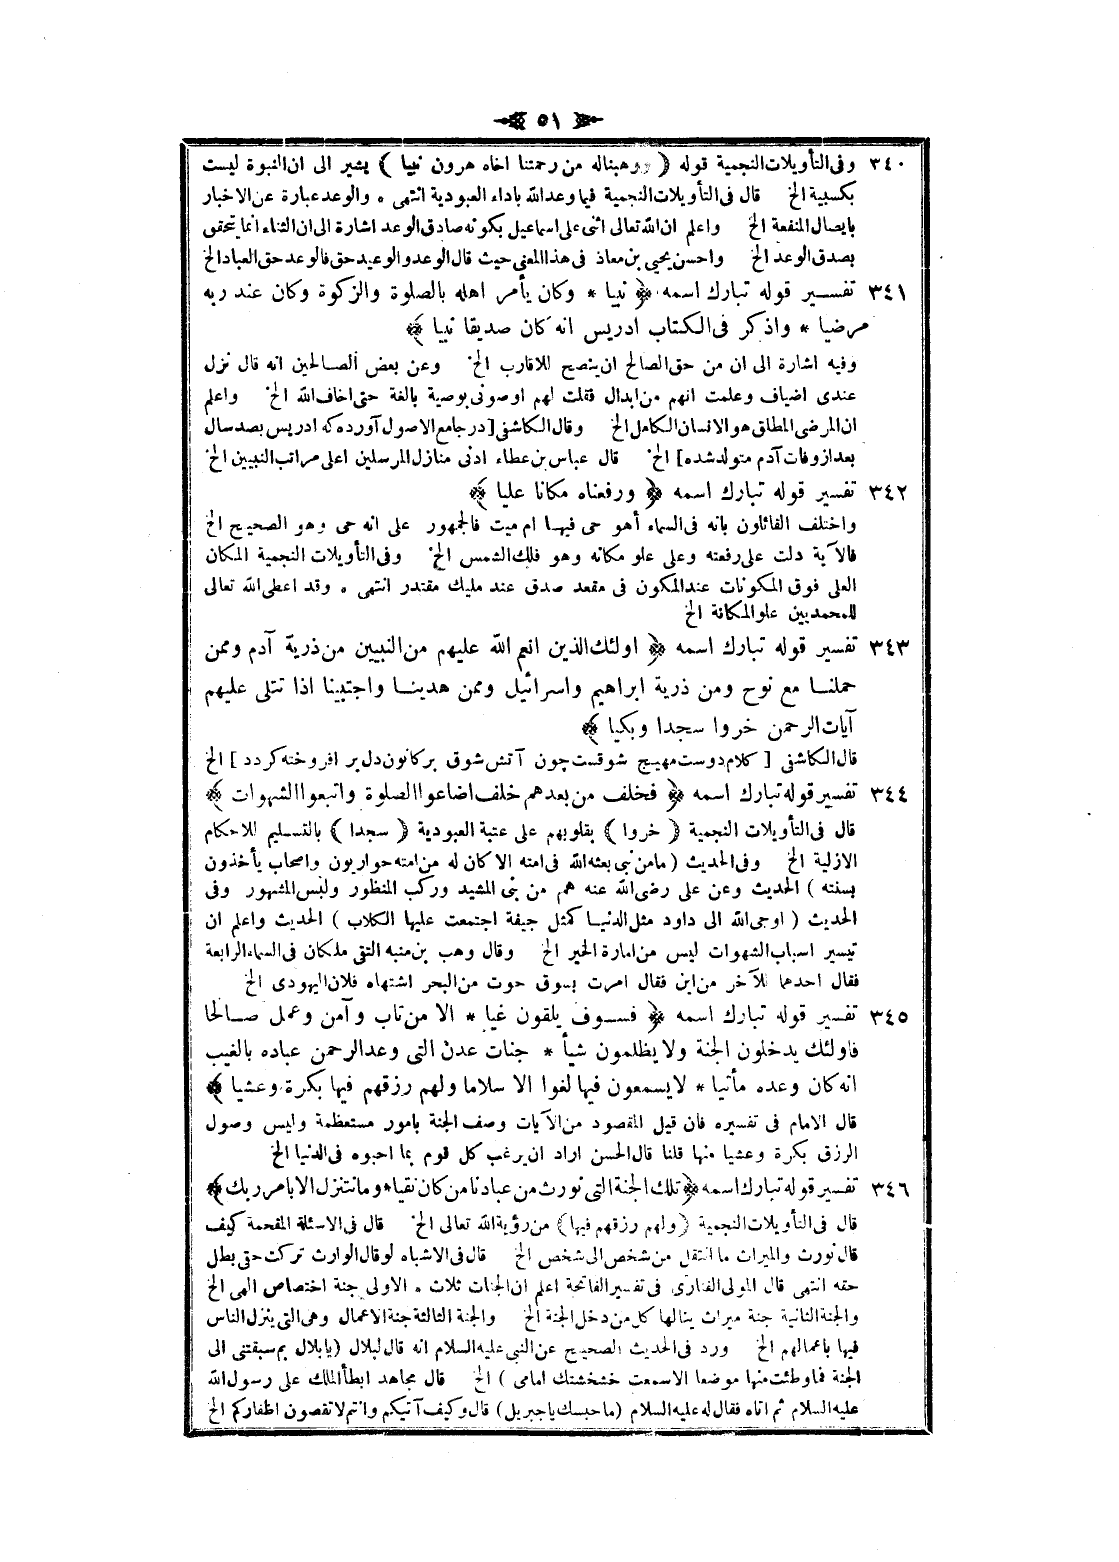 ٥١
٣٤٠ وفى التأويلات النجمية قوله ( ووهبناله من رحمتنا اخاه هرون نبيا ) يشير الى ان النبوة ليست
بكسبية الخ قال فى التأويلات النجمية فيما وعدالله باداء العبودية انتهى ٠ والوعد عبارة عن الاخبار
بايصال المنفعة الخ واعلم ان الله تعالى اثنى على اسماعيل بكونه صادق الوعد اشارة الى ان الثناء انما يتحقق
بصدق الوعد الخ واحسن يحيى بن معاذ فى هذا المعنى حيث قال الوعد والوعيد حق فالوعد حق العباد الخ
٣٤١ تفسير قوله تبارك اسمه ﴿ نبيا * وكان يأمر اهله بالصلوة والزكوة وكان عند ربه
مرضيا * واذكر فى الكتاب ادريس انه كان صديقا نبيا ﴾
وفيه اشارة الى ان من حق الصالح ان ينصح للاقارب الخ وعن بعض الصالحين انه قال نزل
عندى اضياف وعلمت انهم من ابدال فقلت لهم اوصونى بوصية بالغة حتى اخاف الله الخ واعلم
ان المرضى المطلق هو الانسان الكامل الخ وقال الكاشفى [ در جامع الاصول آورده كه ادريس بصد سال
بعد از وفات آدم متولد شده ] الخ قال عباس بن عطاء ادنى منازل المرسلين اعلى مراتب النبيين الخ
٣٤٢ تفسير قوله تبارك اسمه ﴿ ورفعناه مكانا عليا ﴾
واختلف القائلون بانه فى السماء أهو حى فيها ام ميت فالجمهور على انه حى وهو الصحيح الخ
فالآية دلت على رفعته وعلى علو مكانه وهو فلك الشمس الخ وفى التأويلات النجمية المكان
العلى فوق المكونات عند المكون فى مقعد صدق عند مليك مقتدر انتهى ٠ وقد اعطى الله تعالى
للمحمديين علو المكانة الخ
٣٤٣ تفسير قوله تبارك اسمه ﴿ اولئك الذين انعم الله عليهم من النبيين من ذرية آدم وممن
حملنا مع نوح ومن ذرية ابراهيم واسرائيل وممن هدينا واجتبينا اذا تتلى عليهم
آيات الرحمن خروا سجدا وبكيا ﴾
قال الكاشفى [ كلام دوست مهيج شوقست چون آتش شوق بر كانون دل بر افروخته كردد ] الخ
٣٤٤ تفسير قوله تبارك اسمه ﴿ فخلف من بعدهم خلف اضاعوا الصلوة واتبعوا الشهوات ﴾
قال فى التأويلات النجمية ( خروا ) بقلوبهم على عتبة العبودية ( سجدا ) بالتسليم للاحكام
الازلية الخ وفى الحديث ( مامن نبى بعثه الله فى امته الا كان له من امته حواريون واصحاب يأخذون
بسنته ) الحديث وعن على رضى الله عنه هم من بنى المشيد وركب المنظور ولبس المشهور وفى
الحديث ( اوحى الله الى داود مثل الدنيا كمثل جيفة اجتمعت عليها الكلاب ) الحديث واعلم ان
تيسير اسباب الشهوات ليس من امارة الخير الخ وقال وهب بن منبه التقى ملكان فى السماء الرابعة
فقال احدهما للآخر من اين فقال امرت بسوق حوت من البحر اشتهاه فلان اليهودى الخ
٣٤٥ تفسير قوله تبارك اسمه ﴿ فسوف يلقون غيا * الا من تاب وآمن وعمل صالحا
فاولئك يدخلون الجنة ولا يظلمون شيأ * جنات عدن التى وعد الرحمن عباده بالغيب
انه كان وعده مأتيا * لا يسمعون فيها لغوا الا سلاما ولهم رزقهم فيها بكرة وعشيا ﴾
قال الامام فى تفسيره فان قيل المقصود من الآيات وصف الجنة بامور مستعظمة وليس وصول
الرزق بكرة وعشيا منها قلنا قال الحسن اراد ان يرغب كل قوم بما احبوه فى الدنيا الخ
٣٤٦ تفسير قوله تبارك اسمه ﴿ تلك الجنة التى نورث من عبادنا من كان تقيا * وما نتنزل الا بامر ربك ﴾
قال فى التأويلات النجمية ( ولهم رزقهم فيها ) من رؤية الله تعالى الخ قال فى الاسئلة المقحمة كيف
قال نورث والميراث ما انتقل من شخص الى شخص الخ قال فى الاشباه لو قال الوارث تركت حقى بطل
حقه انتهى قال المولى الفنارى فى تفسير الفاتحة اعلم ان الجنات ثلاث ٠ الاولى جنة اختصاص الهى الخ
والجنة الثانية جنة ميراث ينالها كل من دخل الجنة الخ والجنة الثالثة جنة الاعمال وهى التى ينزل الناس
فيها باعمالهم الخ ورد فى الحديث الصحيح عن النبى عليه السلام انه قال لبلال ( يا بلال بم سبقتنى الى
الجنة فما وطئت منها موضعا الا سمعت خشخشتك امامى ) الخ قال مجاهد ابطأ الملك على رسول الله
عليه السلام ثم اتاه فقال له عليه السلام ( ما حبسك يا جبريل ) قال وكيف آتيكم وانتم لا تقصون اظفاركم الخ